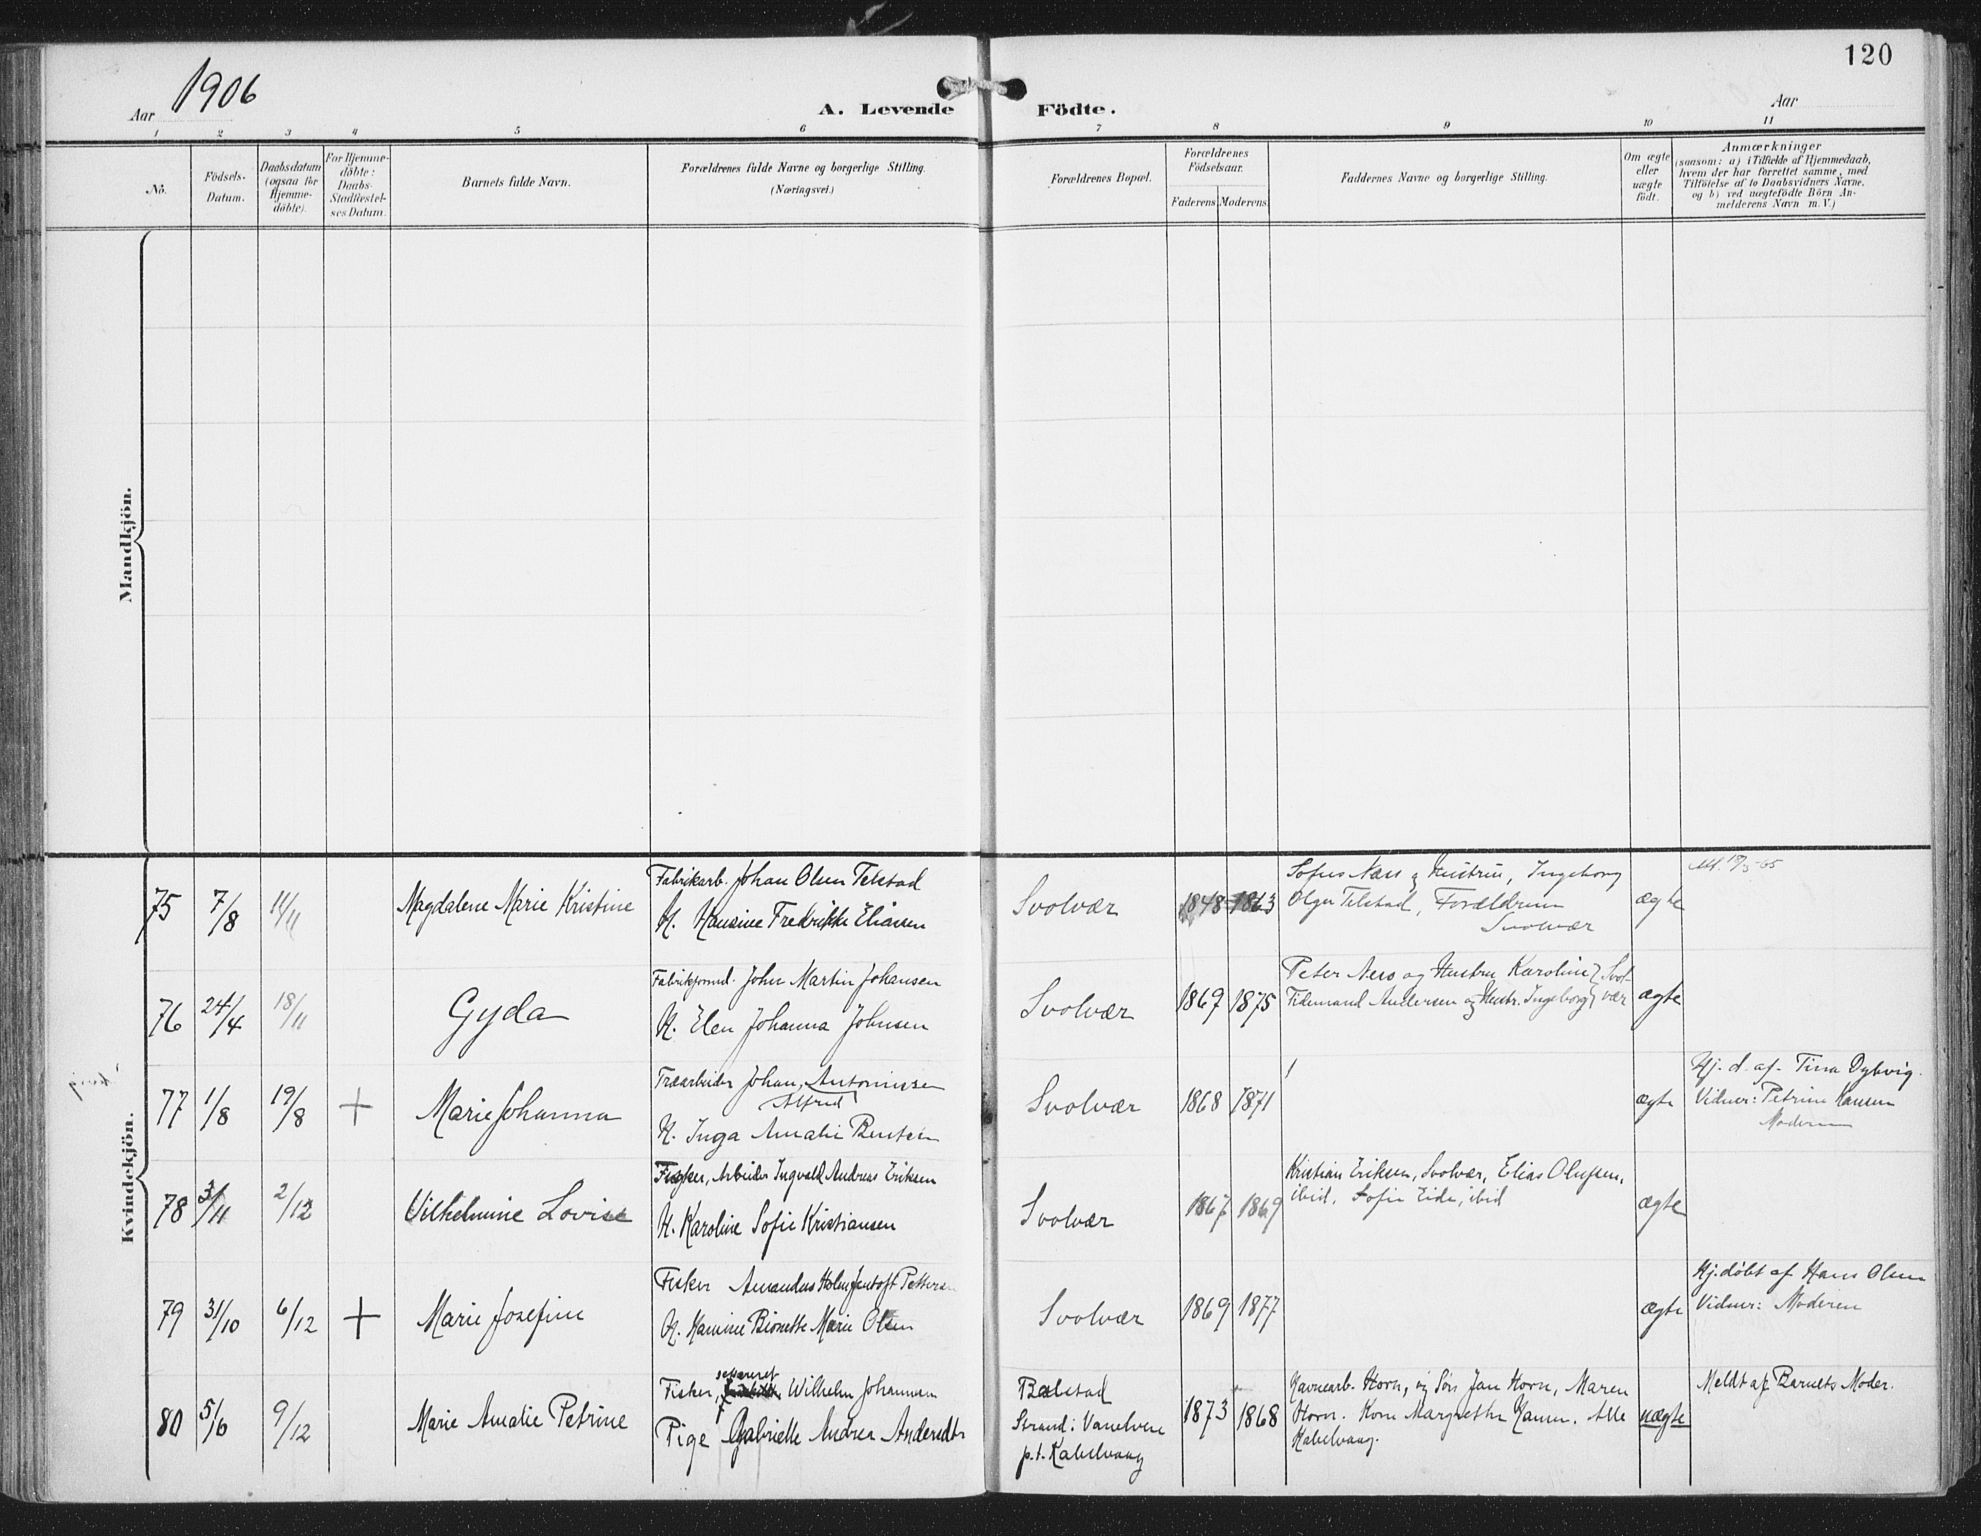 120
Aar 1906
A. Levende Födte.
Aar
1 2 3 4 5 6 7 8 9 10 11
No.
Födsels-
Datum.
Daabsdatum
(ogsaa for
Hjemme-
döbte).
For Hjemme-
döbte:
Daabs-
Stadfestel-
ses Datum.
Barnets fulde Navn.
Forældrenes fulde Navne og borgerlige Stilling.
(Næringsvei.)
Forældrenes Bopæl.
Forældrenes
Födselsaar.
Faderens. Moderens.
Faddernes Navne og borgerlige Stilling.
Om ægte
eller
uægte
födt.
Anmærkninger
(saasom: a) i Tilfælde af Hjemmedaab,
hvem der har forrettet samme, med
Tilföielse af to Daabsvidners Navne,
og b) ved uægtefödte Börn An-
melderens Navn m. V.)
Mandkjön.
Kvindekjön.
75 7/8 11/11 Magdalene Marie Kristine
Fabrikarb. Johan Olsen Telstad
H. Hansine Fredrikke Eliassen
Svolvær 1848 1863
Sofus Næss og Hustru, Ingeborg
Olga Telstad, Forældrene
Svolvær
ægte
76 24/4 18/11 Gyda
Fabrikformd. John Martin Johansen
H. Elen Johanna Johnsen
Svolvær 1869 1875
Peter Ness og Hustru Karoline } Svol-
Tidemand Andersen og Hustr. Ingeborg } vær
ægte
77 1/8 19/8 + Marie Johanna
Træarbeider Johan, Antoniussen
Alfred
H. Inga Amalie Bentsen
Svolvær 1868 1871
ægte
Hj. d. af. Tina Dybvig.
Vidner: Petrine Hansen
Moderen
78 3/11 2/12 Vilhelmine Lovise
Fisker, Arbeider Ingvald Andreas Eriksen
H. Karoline Sofie Kristiansen
Svolvær 1867 1869
Kristian Eriksen, Svolvær, Elias Olufsen,
ibid, Sofie Eide, ibid
ægte
79 31/10 6/12 + Marie Josefine
Fisker Amandus Holm Jentoft Pettersen
H. Hansine Bionette Marie Olsen
Svolvær 1869 1877
ægte
Hj. döbt af Hans Olsen
Vidner: Moderen
80 5/6 9/12 Marie Amalie Petrine
separeret
Fisker, Wilhelm Johannesen
Pige Gabrielle Andrea Andersdtr
Balstad
Strand: Vanelvene
p.t. Kabelvaag
1873 1868
Havnearb. Horn, og Søn Jan Horn, Maren
Horn. Kone Margrethe Hansen. Alle
Kabelvaag.
uægte
Meldt af Barnets Moder.